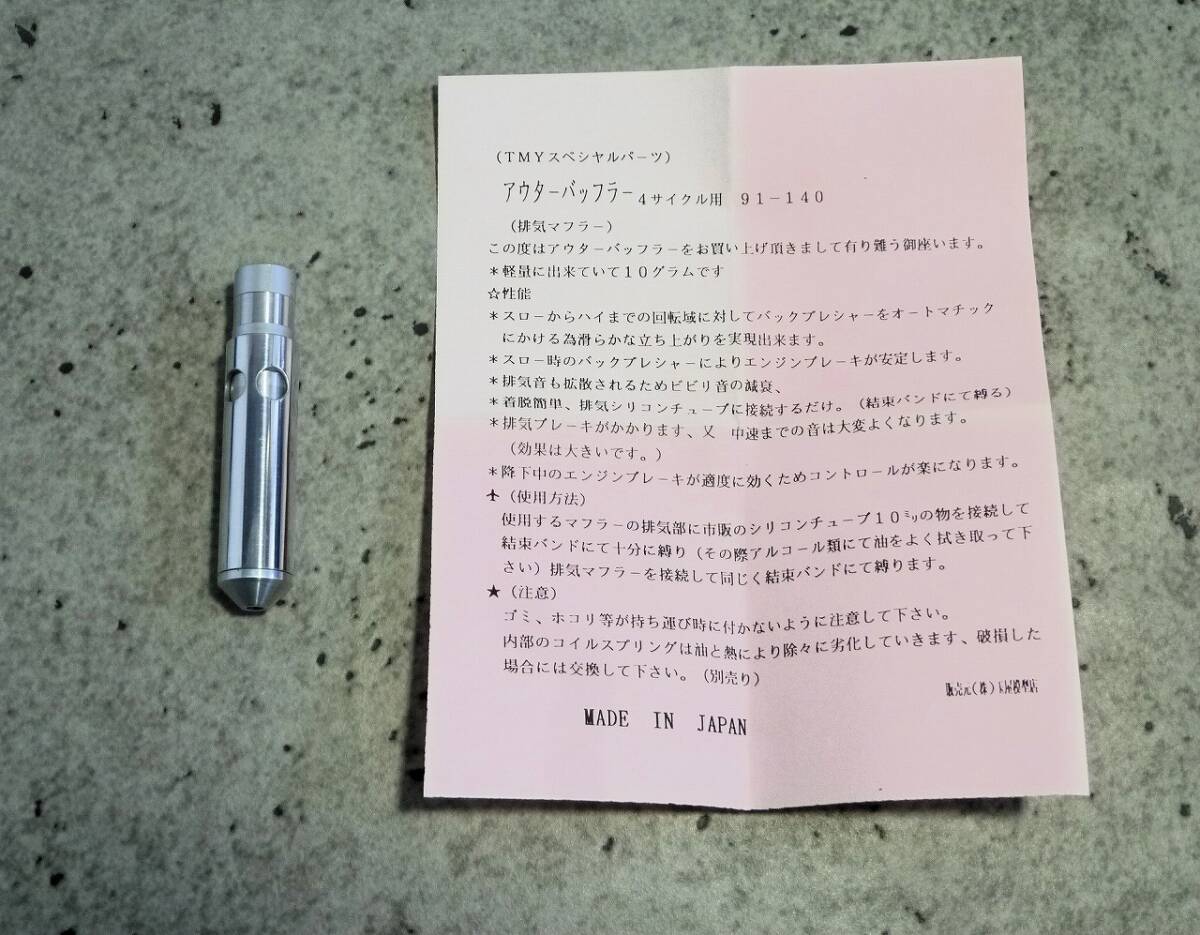 (TMYスペシャルパーツ)
アウターバッフラー4サイクル用 91-140
(排気マフラー)
この度はアウターバッフラーをお買い上げ頂きまして有り難う御座います。
*軽量に出来ていて10グラムです
☆性能
*スローからハイまでの回転域に対してバックプレシャーをオートマチック
にかける為滑らかな立ち上がりを実現出来ます。
*スロー時のバックプレシャーによりエンジンブレーキが安定します。
*排気音も拡散されるためビビリ音の減衰、
*着脱簡単、排気シリコンチューブに接続するだけ。(結束バンドにて縛る)
*排気ブレーキがかかります、又 中速までの音は大変よくなります。
(効果は大きいです。)
*降下中のエンジンブレーキが適度に効くためコントロールが楽になります。
✈(使用方法)
使用するマフラーの排気部に市販のシリコンチューブ10㍉の物を接続して
結束バンドにて十分に縛り(その際アルコール類にて油をよく拭き取って下
さい)排気マフラーを接続して同じく結束バンドにて縛ります。
★(注意)
ゴミ、ホコリ等が持ち運び時に付かないように注意して下さい。
内部のコイルスプリングは油と熱により除々に劣化していきます、破損した
場合には交換して下さい。(別売り)
販売元(株)屋模型店
MADE IN JAPAN